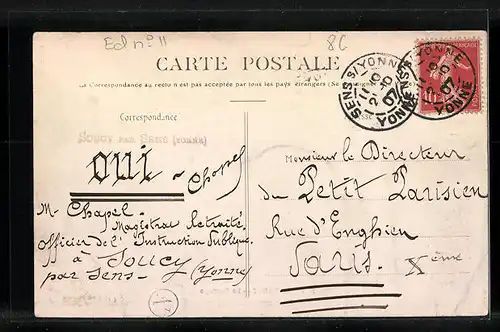 Ed nº 11
86
CARTE POSTALE
La Correspondance au recto n'est pas acceptée par tous les pays étrangers
Correspondance
SOUCY PAR SENS (YONNE)
oui - Chapel
M. Chapel.
Magistrat Retraité.
officier de l'Instruction Publique.
à Soucy
par Sens (Yonne)
SENS S/YONNE
YONNE
Monsieur le Directeur
du Petit Parisien
Rue d'Enghien
Paris. Xème